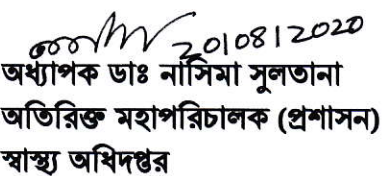 20/08/2020
অধ্যাপক ডাঃ নাসিমা সুলতানা
অতিরিক্ত মহাপরিচালক (প্রশাসন)
স্বাস্থ্য অধিদপ্তর